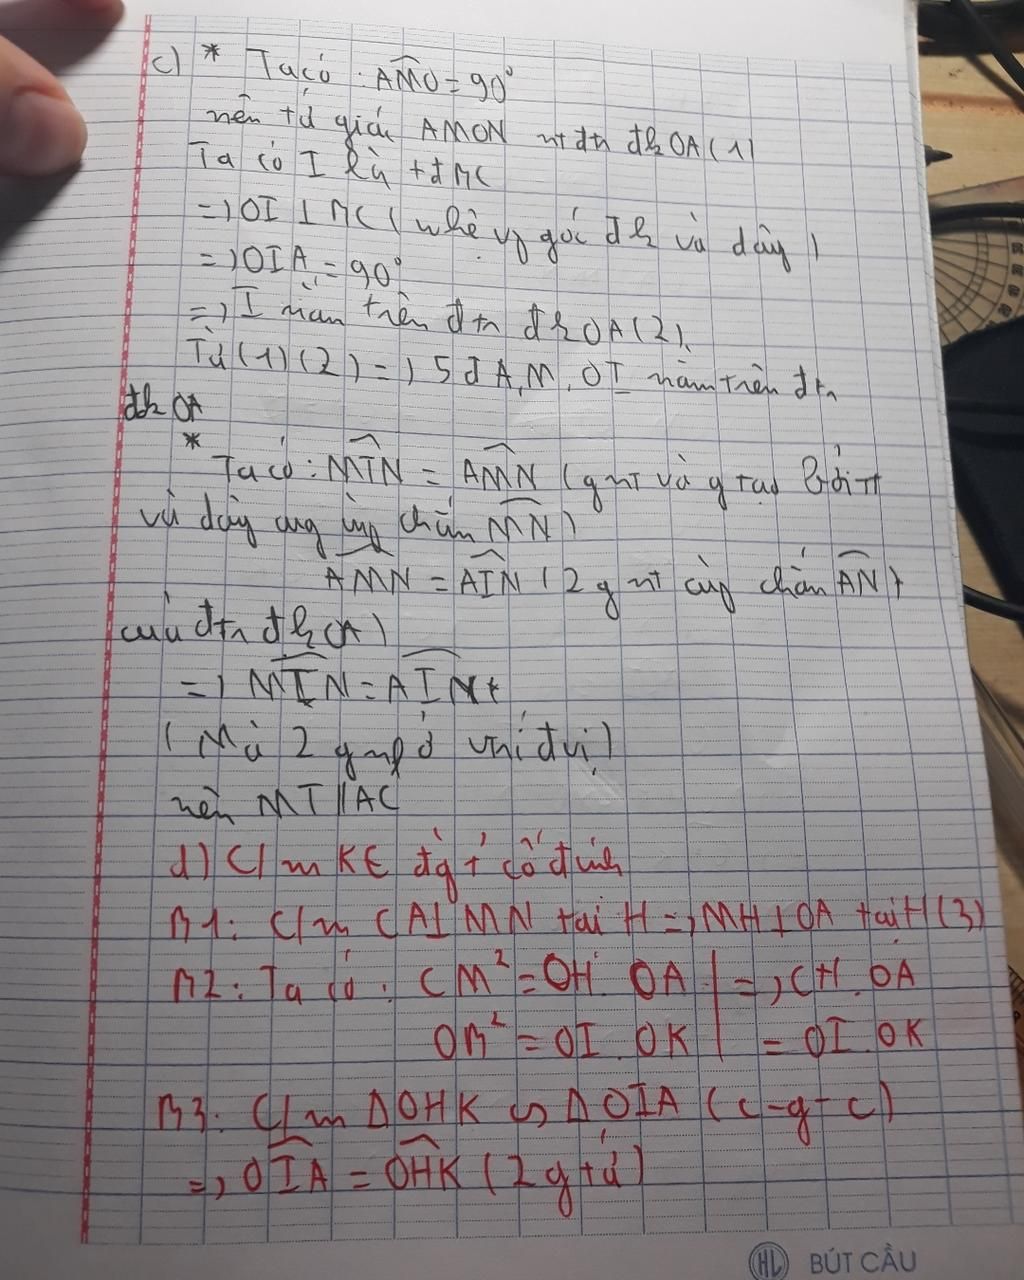 c) * Ta có: AMO = 90°
nên tứ giác AMON nt đtr đk OA (1)
Ta có I là tđ BC
=> OI ⊥ BC ( vg góc đk và dây )
=> OIA = 90°
=> I nằm trên đtr đk OA (2)
Từ (1) (2) => 5 đ A, M, O I nằm trên đtr
đk OA
* Ta có: MTN = AMN (g nt và g tạo bởi tt
và dây cung cùng chắn MN)
AMN = AIN (2 g nt cùng chắn AN
của đtr đk OA)
=> MTN = AIN
( Mà 2 g ở vị trí đvị )
nên MT // AC
d) C/m KE đg t cố định
B1: C/m OA ⊥ MN tại H => MH ⊥ OA tại H (3)
B2: Ta có: OM² = OH . OA | => OH . OA
OB² = OI . OK | = OI . OK
B3: C/m ΔOHK ∽ ΔOIA (c-g-c)
=> OIA = OHK (2 g tứ)
HL BÚT CẦU